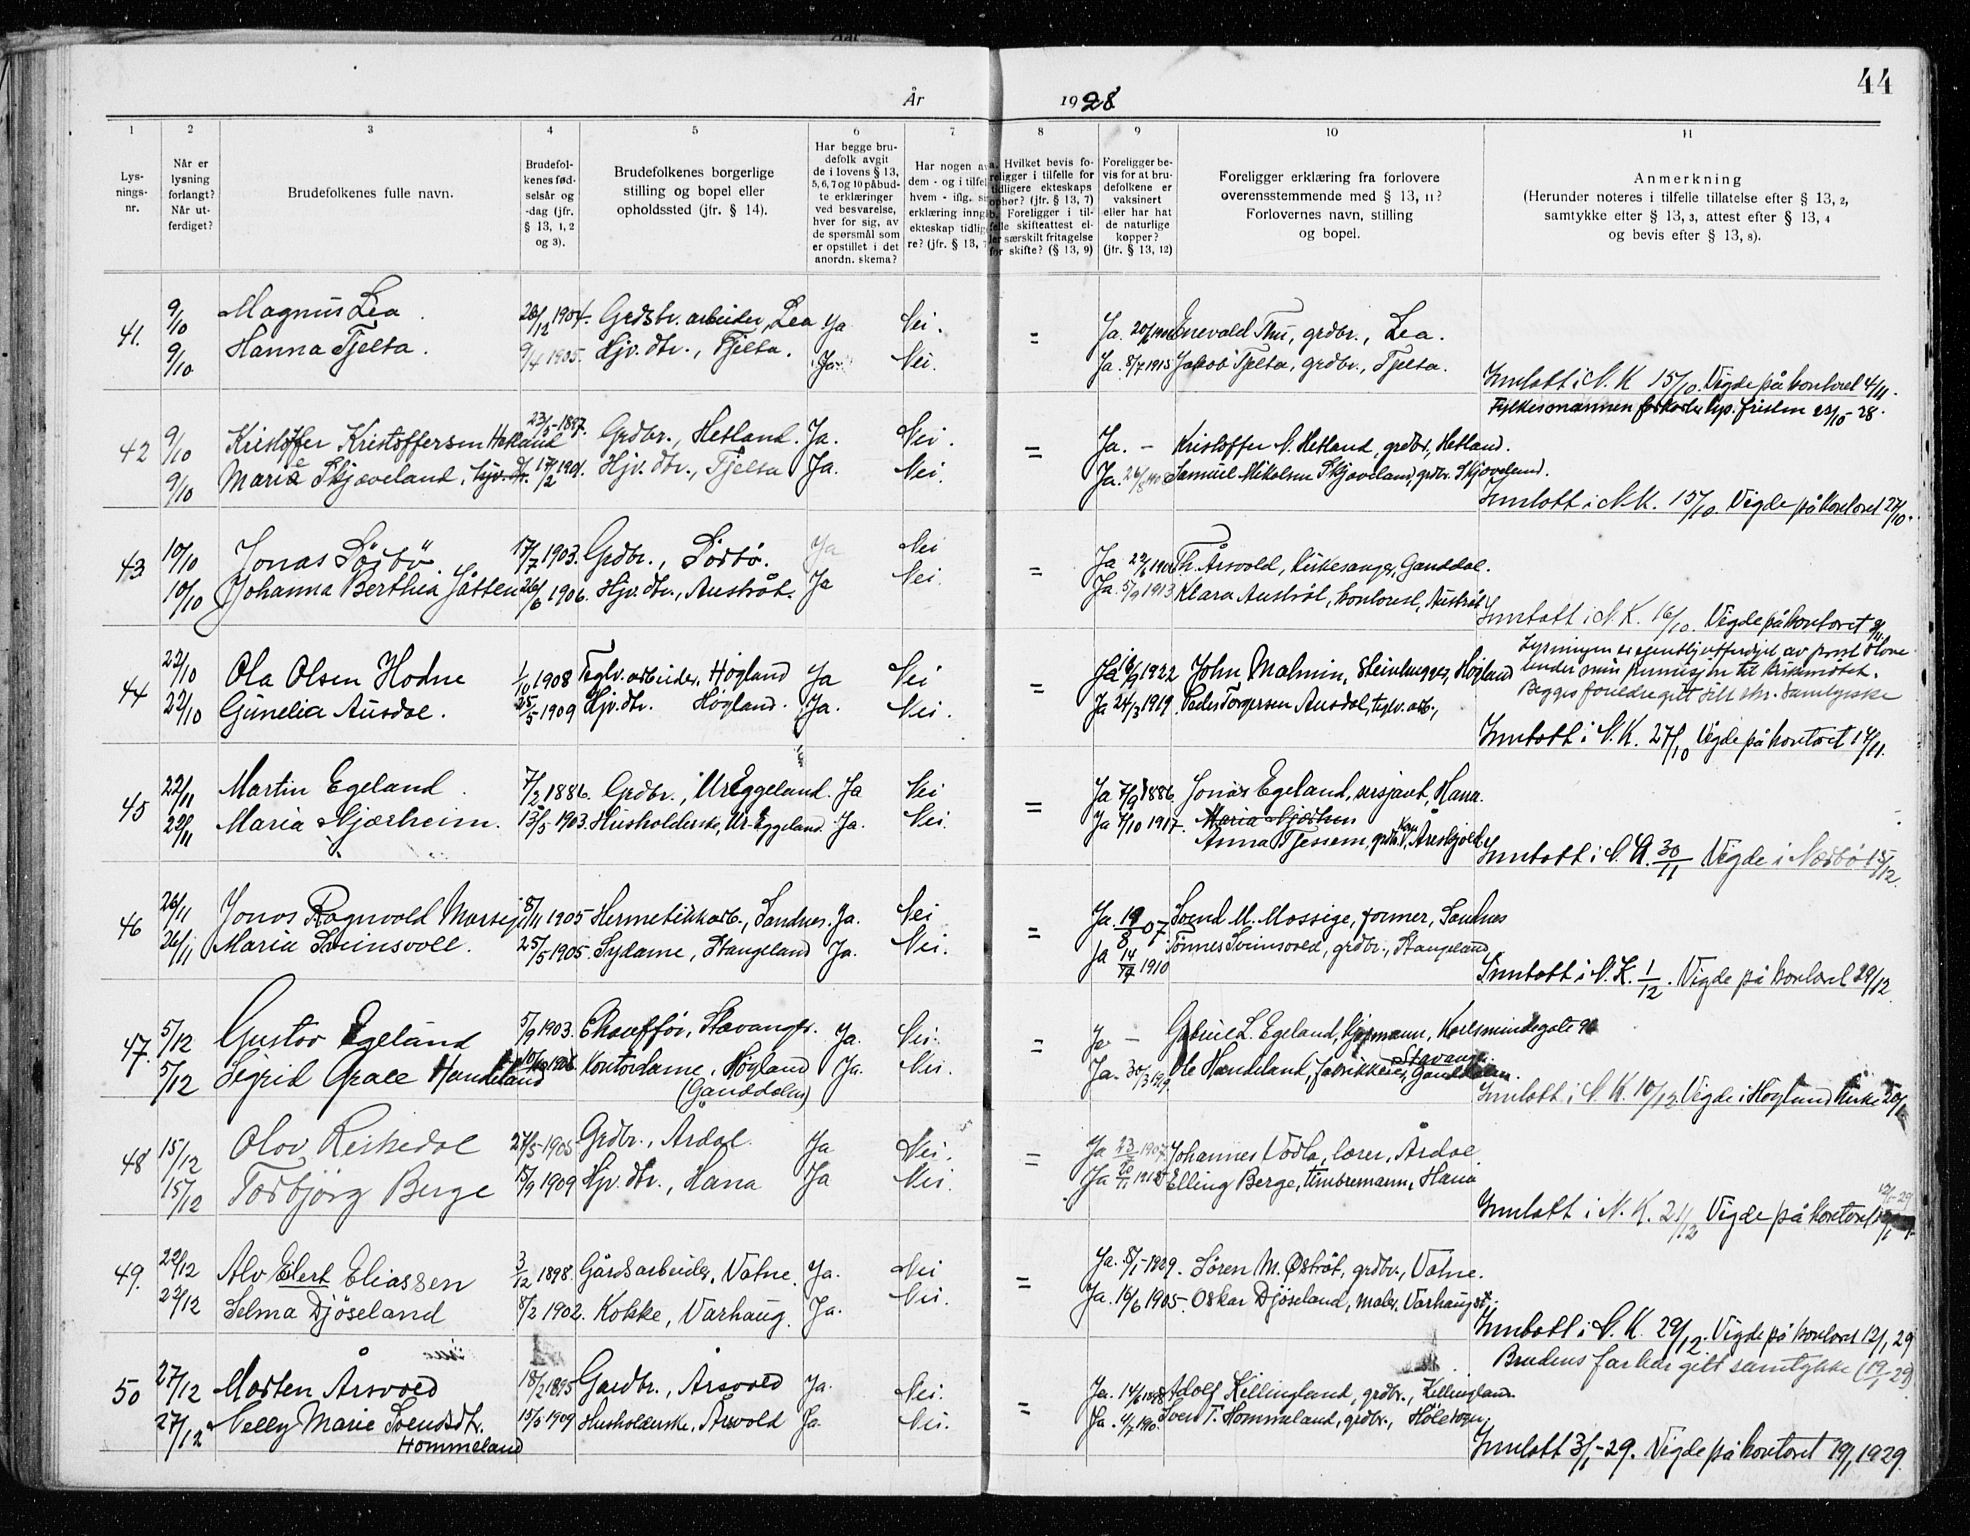 44
År 1928
1 2 3 4 5 6 7 8 9 10 11
Lys-
nings-
nr.
Når er
lysning
forlangt?
Når ut-
ferdiget?
Brudefolkenes fulle navn.
Brudefol-
kenes fød-
selsår og
-dag (jfr.
§ 13, 1, 2
og 3).
Brudefolkenes borgerlige
stilling og bopel eller
opholdssted (jfr. § 14).
Har begge bru-
defolk avgit
de i lovens § 13,
5, 6, 7 og 10 påbud-
te erklæringer
ved besvarelse,
hver for sig, av
de spørsmål som
er opstillet i det
anordn. skema?
Har nogen av
dem - og i tilfel
hvem - iflg.
erklæring inngå
ekteskap tidlig
re? (jfr. § 13,
a. Hvilket bevis fo-
religger i tilfelle for
tidligere ekteskaps
ophør? (jfr. § 13, 7)
b. Foreligger i til-
felle skifteattest el-
ler særskilt fritagelse
for skifte? (§ 13, 9)
Foreligger be-
vis for at bru-
defolkene er
vaksinert
eller har hat
de naturlige
kopper?
(jfr. § 13, 12)
Foreligger erklæring fra forlovere
overensstemmende med § 13, 11?
Forlovernes navn, stilling
og bopel.
Anmerkning
(Herunder noteres i tilfelle tillatelse efter § 13, 2,
samtykke efter § 13, 3, attest efter § 13, 4
og bevis efter § 13, 8).
41. 9/10 Magnus Lea 26/12 1904. Grdbr. arbeider, Lea Ja Nei. = Ja. 20/ Enevald Thu, grdbr., Lea.
9/10 Hanna Tjelta. 9/4 1905. Hjv. dtr., Tjelta. Ja. Nei. Ja. 8/7 1915 Jakob Tjelta, grdbr., Tjelta.
Inntatt i N. K 15/10. Vigde på kontoret 4/11.
Fylkesmannen forkortu lys. fristen 23/10-28.
42 9/10 Kristoffer Kristoffersen Hetland 23/5-1897. Grdbr., Hetland. Ja. Nei. = Ja. - Kristoffer N. Hetland, grdbr, Hetland.
9/10 Marie Skjæveland, 17/2 1901. Hjv. dtr., Tjelta Ja. Nei. Ja. Samuel Mikalsen Skjæveland, grdbr. Skjæveland.
Inntatt i N.K. 15/10. Vigde på kontoret 27/10.
43. 10/10 Jonas Sørbø. 17/7 1903. Grdbr., Sørbø. Ja Nei = Ja Th. Årsvold, kirkesanger, Ganddal.
10/10 Johanna Berthea Jåtten 26/6 1906. Hjv. dtr., Austråt. Ja Nei. Ja. 5/9 1913 Klara Austråt, kontorist, Austråt
Inntatt i N. K. 16/10. Vigde på kontoret
44 22/10 Ola Olsen Hodne 1/10 1908 Teglv. arbeider, Høgland Ja Nei = Ja 16/9 1922 John Malmin, Steinhugger, Høgland
22/10 Gunelia Ausdal. 25/5 1909 Hjv. dtr. Høgland. Ja. Nei. Ja 24/3 1919. Peder Torgersen Ausdal, teglv. arb.,
Lysningen er egentlig utferdiget av prost Hove
under min permisjon til kirkemøtet.
Begges foreldre gitt sitt skr. samtykke
Inntatt i N. K. 27/10 Vigde på kontoret 17/11.
45 22/11 Martin Egeland. 7/2 1886. Grdbr., Ur. Eggeland. Ja Nei = Ja 7/9 1886 Jonas Egeland, versjant, Hana.
22/11 Maria Njærheim. 13/5-1903. Husholderske, Ur-Eggeland. Ja. Nei. Ja 4/10 1917. Anna Tjessem, grdbr. kone, Åreskjold.
Inntatt i N. A. 30/11 Vigde i Nærbø 15/12.
46 26/11 Jonas Ragnvald Mossige 8/11 1905 Hermetikkarb., Sandnes. Ja. Nei = Ja. 19/8 07 Svend M. Mossige, former, Sandnes
26/11 Maria Sveinsvoll. 25/5-1905. Sydame, Stangeland Ja. Nei. Ja 14/ 1910 Tønnes Sveinsvold, grdbr., Stangeland
Inntatt i N. K. 1/12. Vigde på kontoret 29/12
47. 5/12 Gustav Egeland 5/9 1903. Chaufför, Stavanger. Ja. Nei. = Ja - Gabriel L. Egeland, kjøpmann, Karlsmindegate 96
5/12 Sigrid Grace Haneland Kontordame, Høyland Ja. Nei. Ja. 30/3 1919. Ole Haneland, fabrikkeier, Ganddalen.
(Ganddalen)
Stavanger
Inntatt i N. K. 10/12 Vigde i Høyland kirke
48 15/12 Olav Riskedal 27/5-1905 Grdbr., Årdal. Ja Nei. = Ja Johannes Vadla, lærer, Årdal
15/12 Torbjörg Berge 15/9 1909 Hjv. dtr., Hana Ja Nei. Ja Elling Berge, timbremann, Hana
Inntatt i N. K. 21/12 Vigde på kontoret 12/1-29
49. 22/12 Alv Elert Eliassen 3/12 1898. Gårdsarbeider, Vatne. Ja. Nei = Ja. 8/1-1929. Søren M. Østråt, grdbr., Vatne.
22/12 Selma Djöseland 8/2 1902. Kokke, Varhaug. Ja. Nei. Ja. 16/6 1905. Oskar Djöseland, maler, Varhaug st.
Inntatt i N. K. 29/12. Vigde på kontoret 12/1 29
Brudens far har gitt samtykke
50 27/12 Morten Årsvold 18/2 1895 Gardbr., Årsvold Ja. Nei. = Ja. Adolf Killingland, grdbr., Killingland
27/12 Nelly Marie Svendsdtr. Hommeland 15/5 1909 Husholderske, Årsvold Ja. Nei. Ja. 4/7 1910. Sven T. Hommeland, grdbr., Høle sogn.
Inntatt 3/1-29. Vigde på kontoret 19/1 1929.